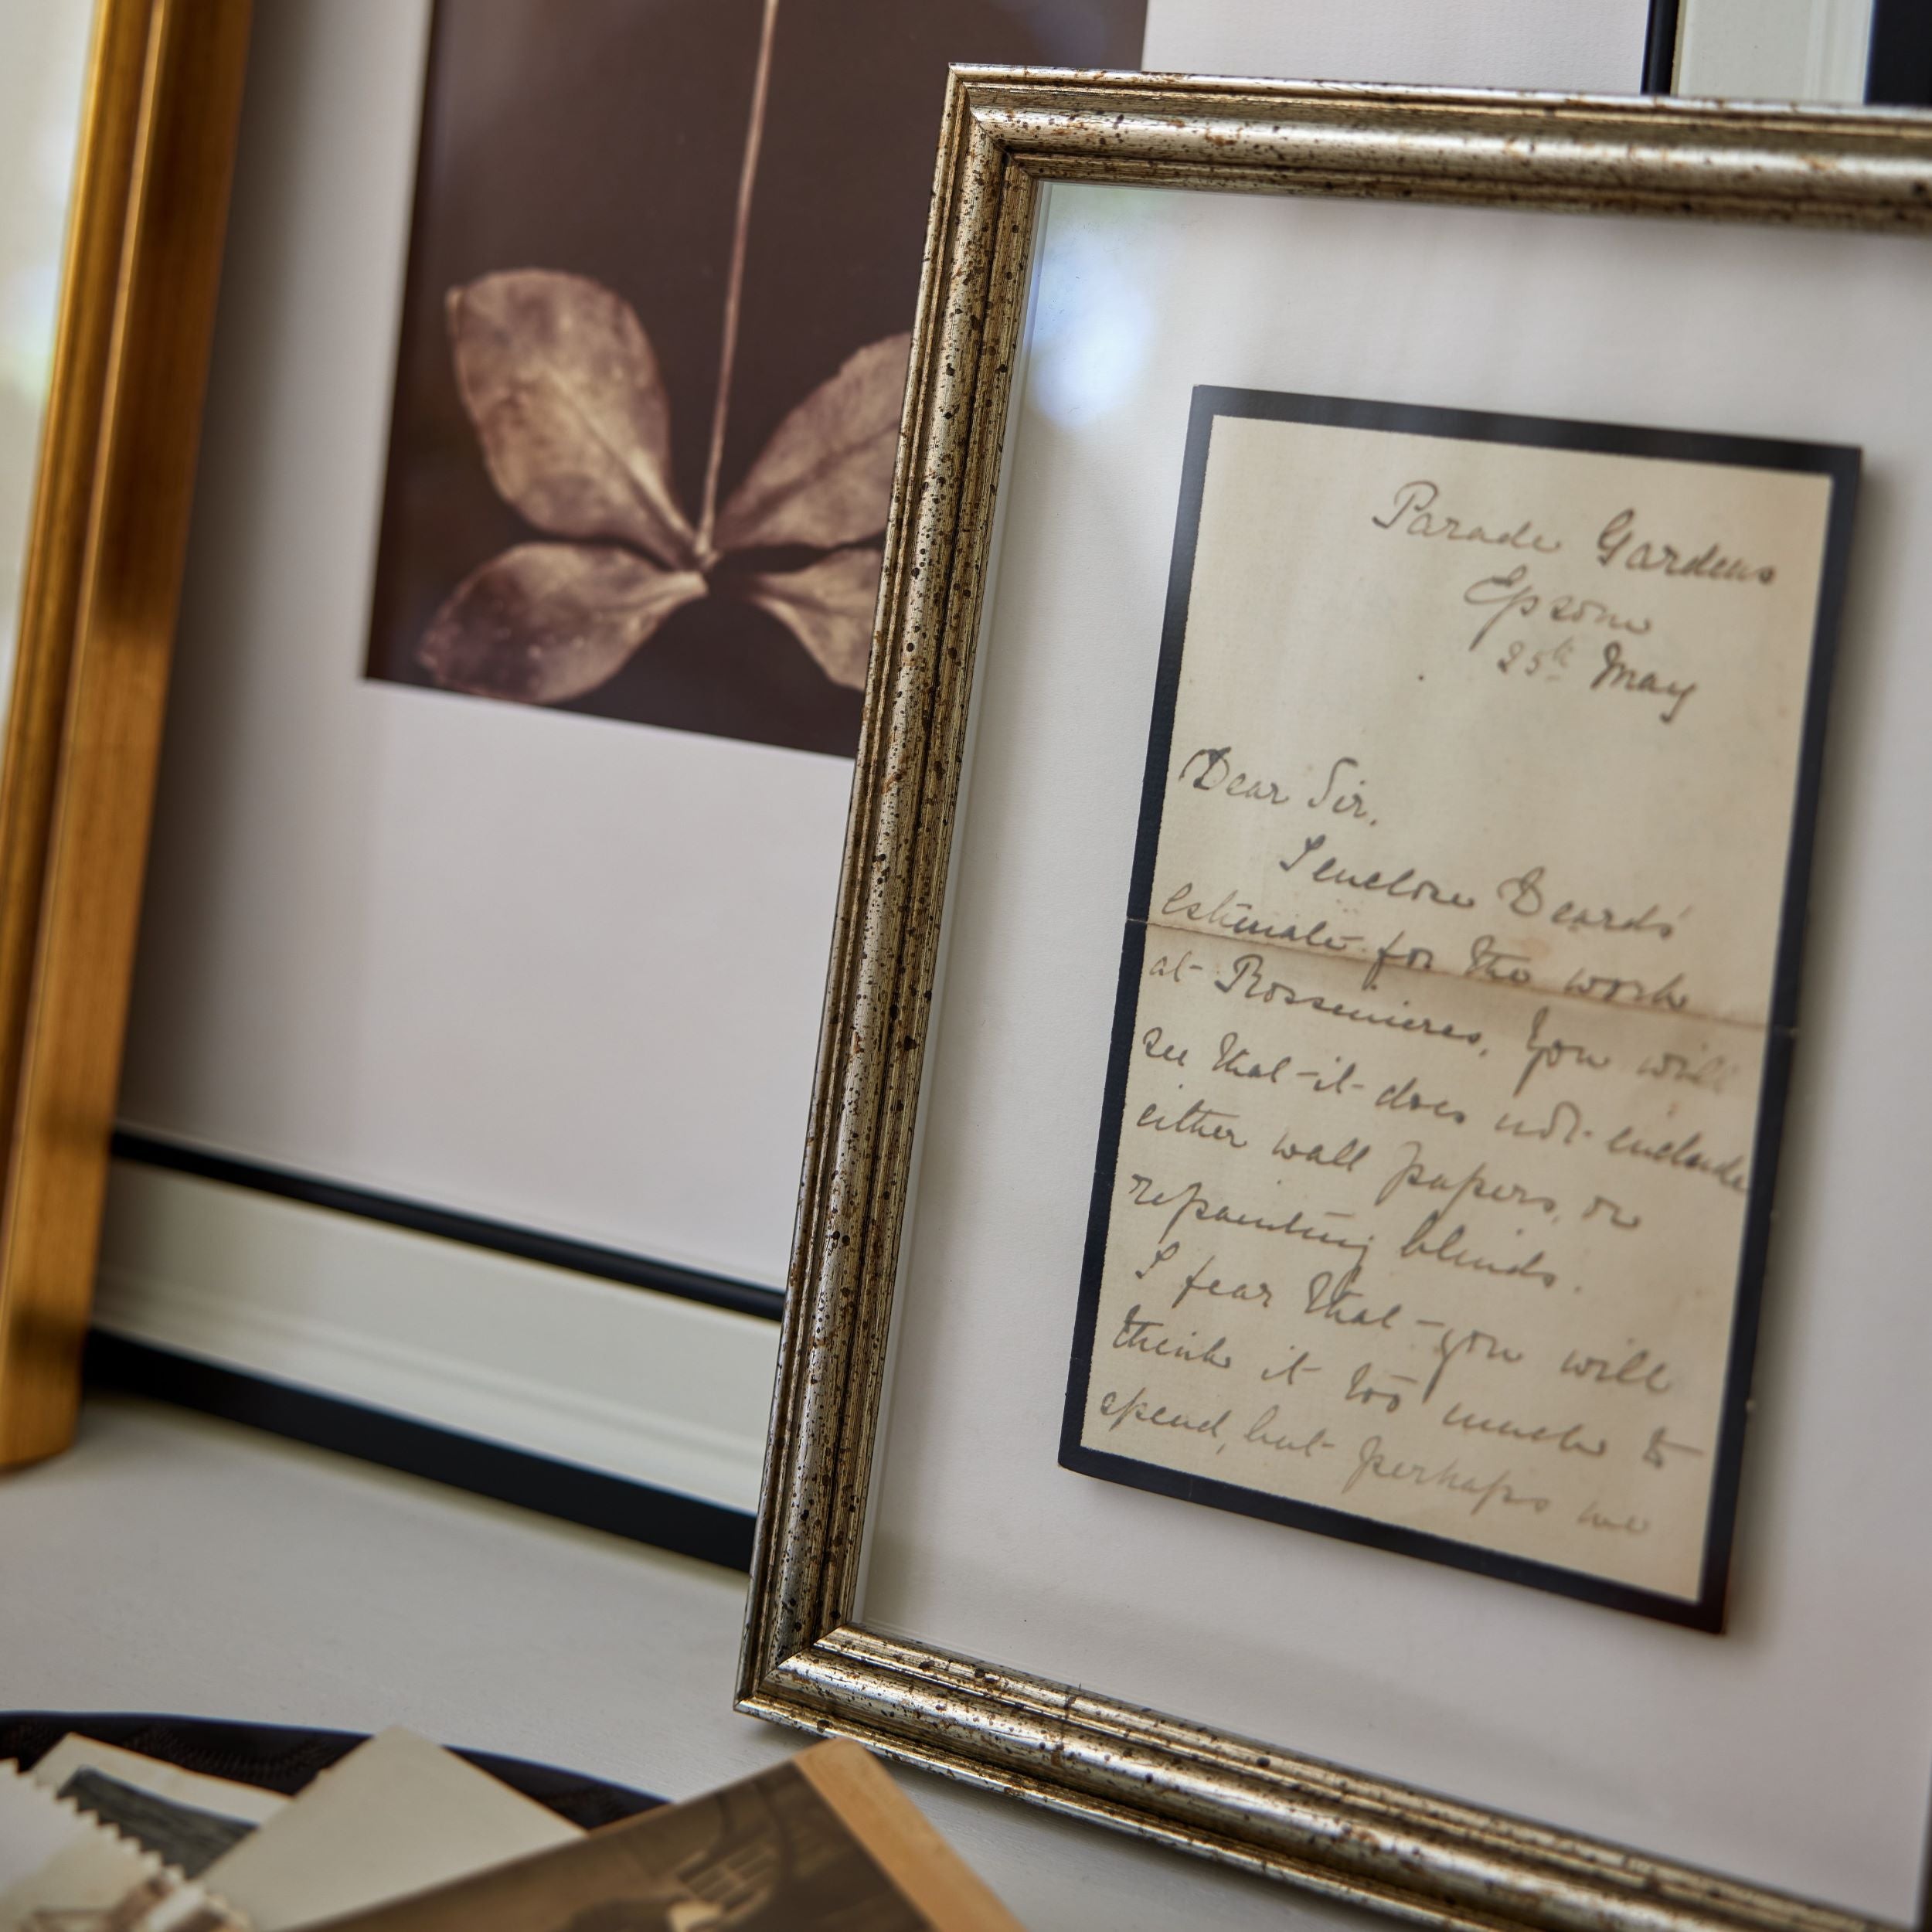 Parade Gardens
Epsom
25th May
Dear Sir,
I enclose Beards'
estimate for the work
at Rossenieres. You will
see that it does not include
either wall papers, or
repainting blinds.
I fear that you will
think it too much to
spend, but perhaps we